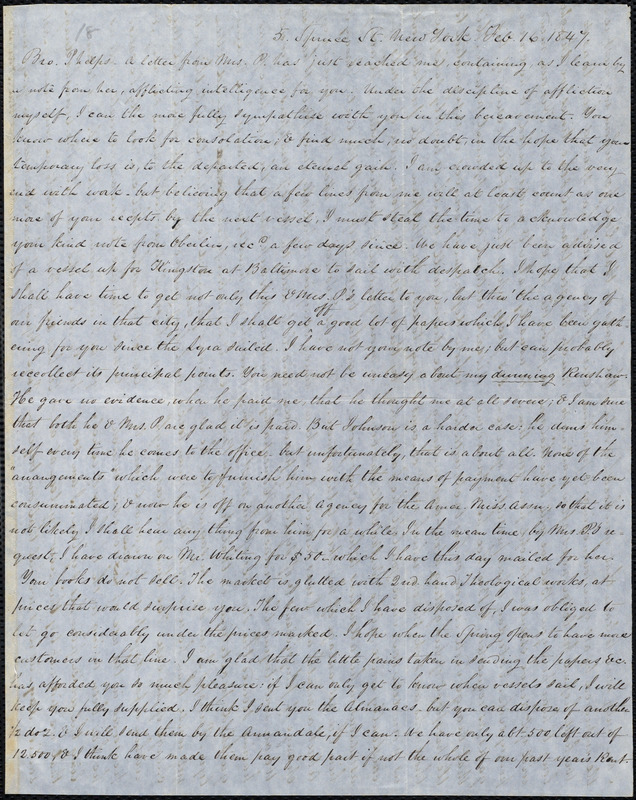 18
5. Spruce St. New York Feb 16. 1847.
Bro. Phelps - A letter from Mrs. P. has just reached me, containing, as I learn by
a note from her, afflicting intelligence for you. Under the discipline of affliction
myself, I can the more fully sympathise with you in this bereavement. You
know where to look for consolation; & find much, no doubt, in the hope that your
temporary loss is, to the departed, an eternal gain. I am crowded up to the very
end with work - but believing that a few lines from me will at least count as one
more of your recpts. by the next vessel, I must steal the time to acknowledge
your kind note from Oberlin, recd. a few days since. We have just been advised
of a vessel up for Kingston at Baltimore to sail with despatch. I hope that I
shall have time to get not only this & Mrs. P's letter to you, but thro' the agency of
our friends in that city, that I shall get off a good lot of papers which I have been gath-
ering for you since the Lyra sailed. I have not your note by me; but can probably
reccollect its principal points. You need not be uneasy about my dunning Renshaw.
He gave no evidence, when he paid me, that he thought me at all severe; & I am sure
that both he & Mrs. P. are glad it is paid. But Johnson is a harder case: he duns him-
self every time he comes to the office. but unfortunately, that is about all. None of the
"arrangements" which were to furnish him with the means of payment have yet been
consummated; & now he is off on another agency for the Amer. Miss. Assn., so that it is
not likely I shall hear any thing from him for a while. In the mean time, by Mrs. P's re-
quest, I have drawn on Mr. Whiting for $50 - which I have this day mailed for her.
Your books do not sell. The market is glutted with 2nd hand Theological works, at
prices that would surprize you. The few which I have disposed of, I was obliged to
let go considerably under the prices marked. I hope when the Spring opens to have more
customers in that line. I am glad that the little pains taken in sending the papers &c.
has afforded you so much pleasure: if I can only get to know when vessels sail, I will
keep you fully supplied. I think I sent you the Almanacs. but you can dispose of another
1/2 doz. & I will send them by the Annandale, if I can. We have only abt. 500 left out of
12.500, & I think have made them pay good part if not the whole of our past years Rent.